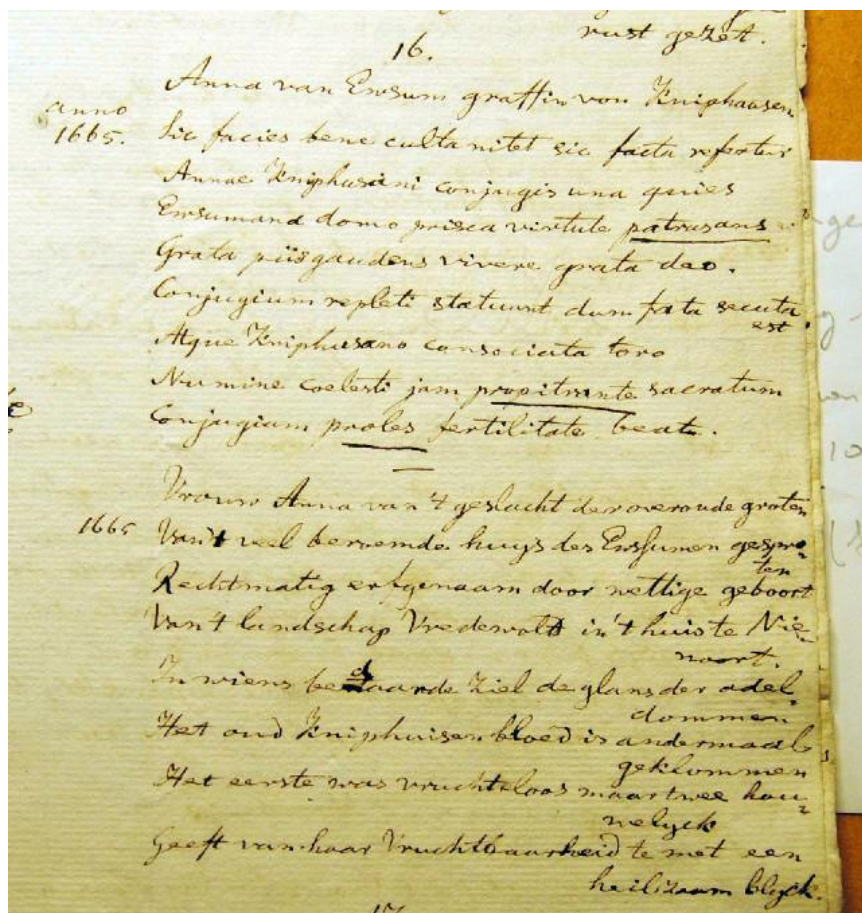 rust gezet.
16.
Anna van Ewsum graffin von Kniphausen
anno
1665.
Sic facies bene culta nitet sic facta refertur
Annae Kniphusani conjugis una quies
Ewsumana domo prisca virtute patrusans
Grata piis gaudens vivere grata deo.
Conjugium repleti statuunt dum fata secuta
est
Atque Kniphusano consociata toro
Numine coelesti jam propitiante sacratum
Conjugium proles fertilitate beat.
Vrouw Anna van 't geslacht der overoude groten
1665
Van't veel beroemde huys des Ewsumen gespro-
ten
Rechtmatig erfgenaam door wettige geboort
Van 't landschap Vredewold in 't huis te Nie-
noort.
In wiens bedaarde ziel de glans der adel
dommen
Het oud Kniphuisen bloed is andermaal
geklommen
Het eerste was vruchteloos maar twee hou-
welyck
Geeft van haar Vruchtbaarheid te met een
heilizaam blyck.
17